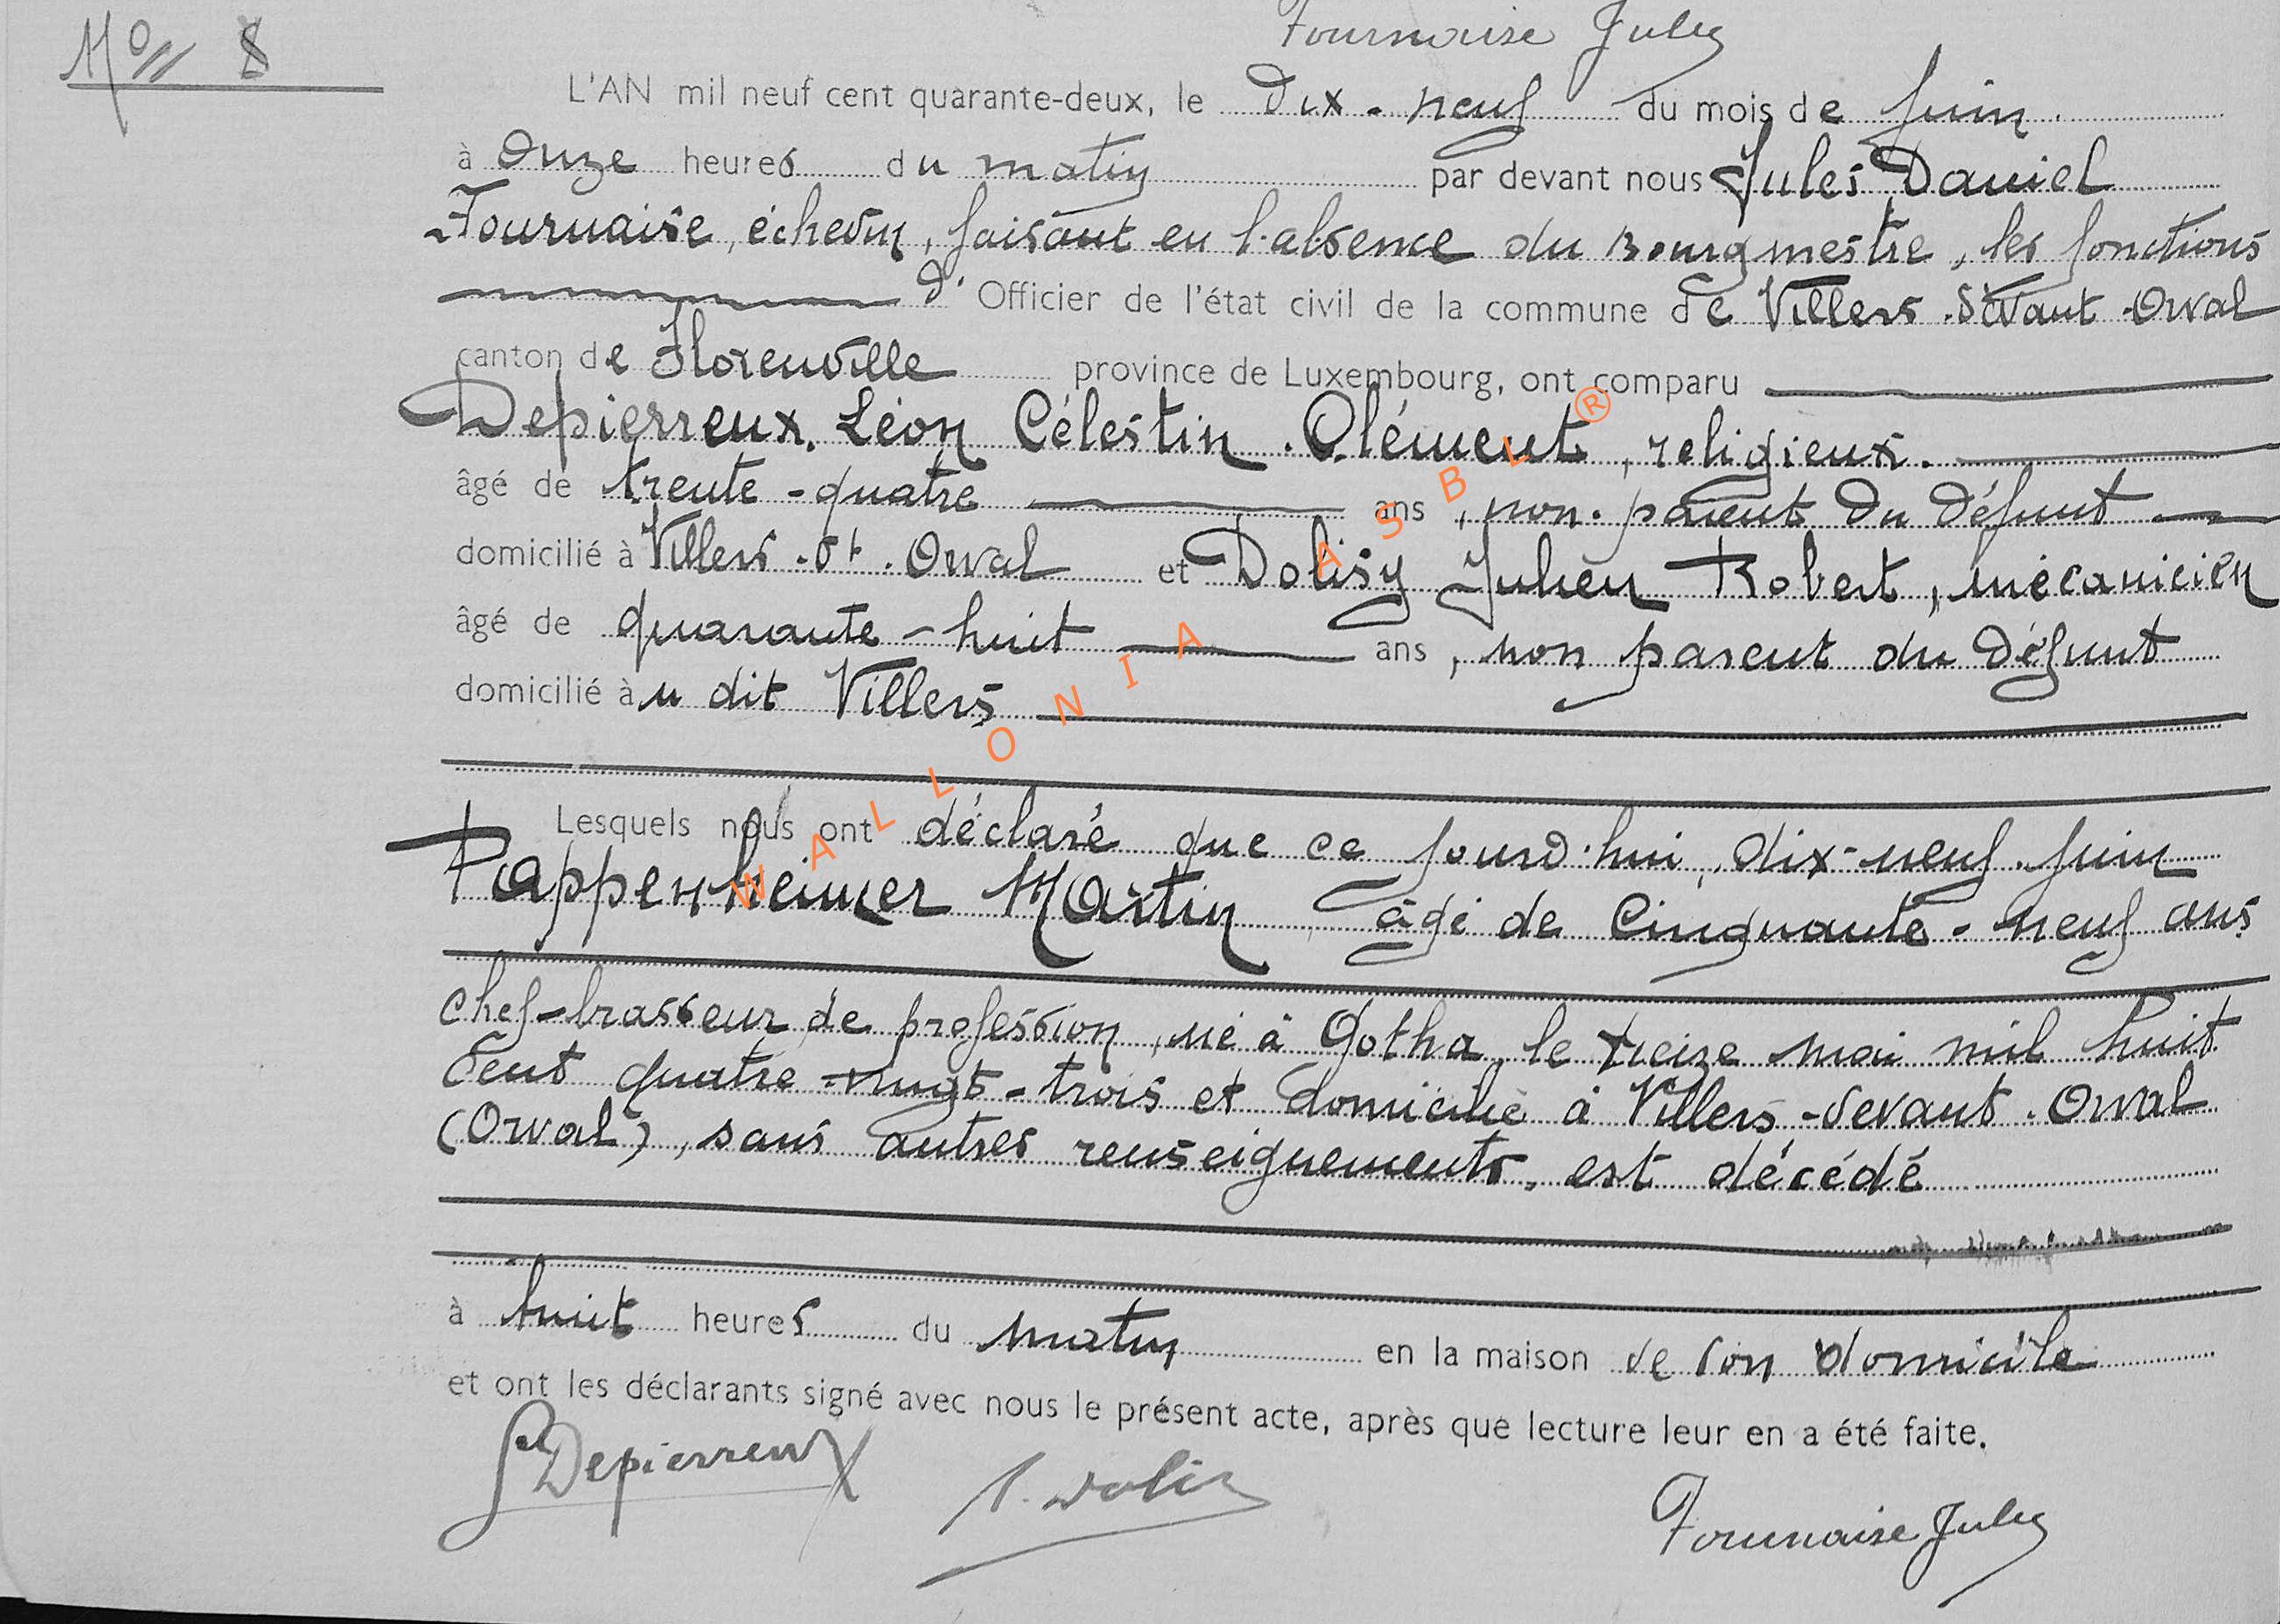 Fournaise Jules
No 8
L'AN mil neuf cent quarante-deux, le Dix-neuf du mois de Juin
à Onze heures du matin par devant nous Jules Daniel
Fournaise, échevin, faisant en l'absence du Bourgmestre, les fonctions
d' Officier de l'état civil de la commune de Villers-devant-Orval
canton de Florenville province de Luxembourg, ont comparu
Depierreux Léon Célestin Clément, religieux
âgé de trente-quatre ans, non parent du défunt
domicilié à Villers-dt-Orval et Dolisy Julien Robert, mécanicien
âgé de quarante-huit ans, non parent du défunt
domicilié àu dit Villers
Lesquels nous ont déclaré que ce jourd'hui, dix-neuf juin
Pappenheimer Martin âgé de Cinquante-neuf ans
chef-brasseur de profession, né à Gotha, le treize mai mil huit
cent quatre-vingt-trois et domicilié à Villers-devant-Orval
(Orval), sans autres renseignements, est décédé
à huit heures du matin en la maison de son domicile
et ont les déclarants signé avec nous le présent acte, après que lecture leur en a été faite.
Depierreux J. Dolisy
Fournaise Jules
WALLONIA ASBL ®